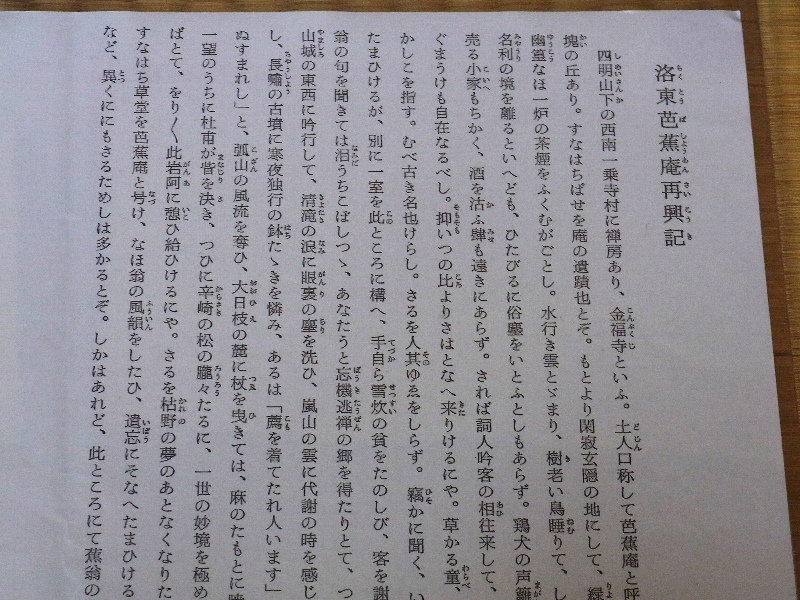 洛東芭蕉庵再興記
四明山下の西南一乗寺村に禅房あり、金福寺といふ。土人口称して芭蕉庵と呼
塊の丘あり。すなはちばせを庵の遺蹟也とぞ。もとより閑寂玄隠の地にして、緑
幽篁なほ一炉の茶煙をふくむがごとし。水行き雲とゞまり、樹老い鳥睡りて、し
名利の境を離るといへども、ひたぶるに俗塵をいとふとしもあらず。鶏犬の声籬
売る小家もちかく、酒を沽ふ肆も遠きにあらず。されば詞人吟客の相往来して、
ぐまうけも自在なるべし。抑いつの比よりさはとなへ来りけるにや。草かる童、
かしこを指す。むべ古き名也けらし。さるを人其ゆゑをしらず。竊かに聞く、い
たまひけるが、別に一室を此ところに構へ、手自ら雪炊の貧をたのしび、客を謝
翁の句を聞きては泪うちこぼしつゝ、あなたうと忘機逃禅の郷を得たりとて、つ
山城の東西に吟行して、清滝の浪に眼裏の塵を洗ひ、嵐山の雲に代謝の時を感じ
し、長嘯の古墳に寒夜独行の鉢たゝきを憐み、あるは「薦を着てたれ人います」
ぬすまれし」と、孤山の風流を奪ひ、大日枝の麓に杖を曳きては、麻のたもとに暁
一望のうちに杜甫が眥を決き、つひに辛崎の松の朧々たるに、一世の妙境を極め
ばとて、をり〳〵此岩阿に憩ひ給ひけるにや。さるを枯野の夢のあとなくなりた
すなはち草堂を芭蕉庵と号け、なほ翁の風韻をしたひ、遺忘にそなへたまひける
など、異くににもさるためしは多かるとぞ。しかはあれど、此ところにて蕉翁の